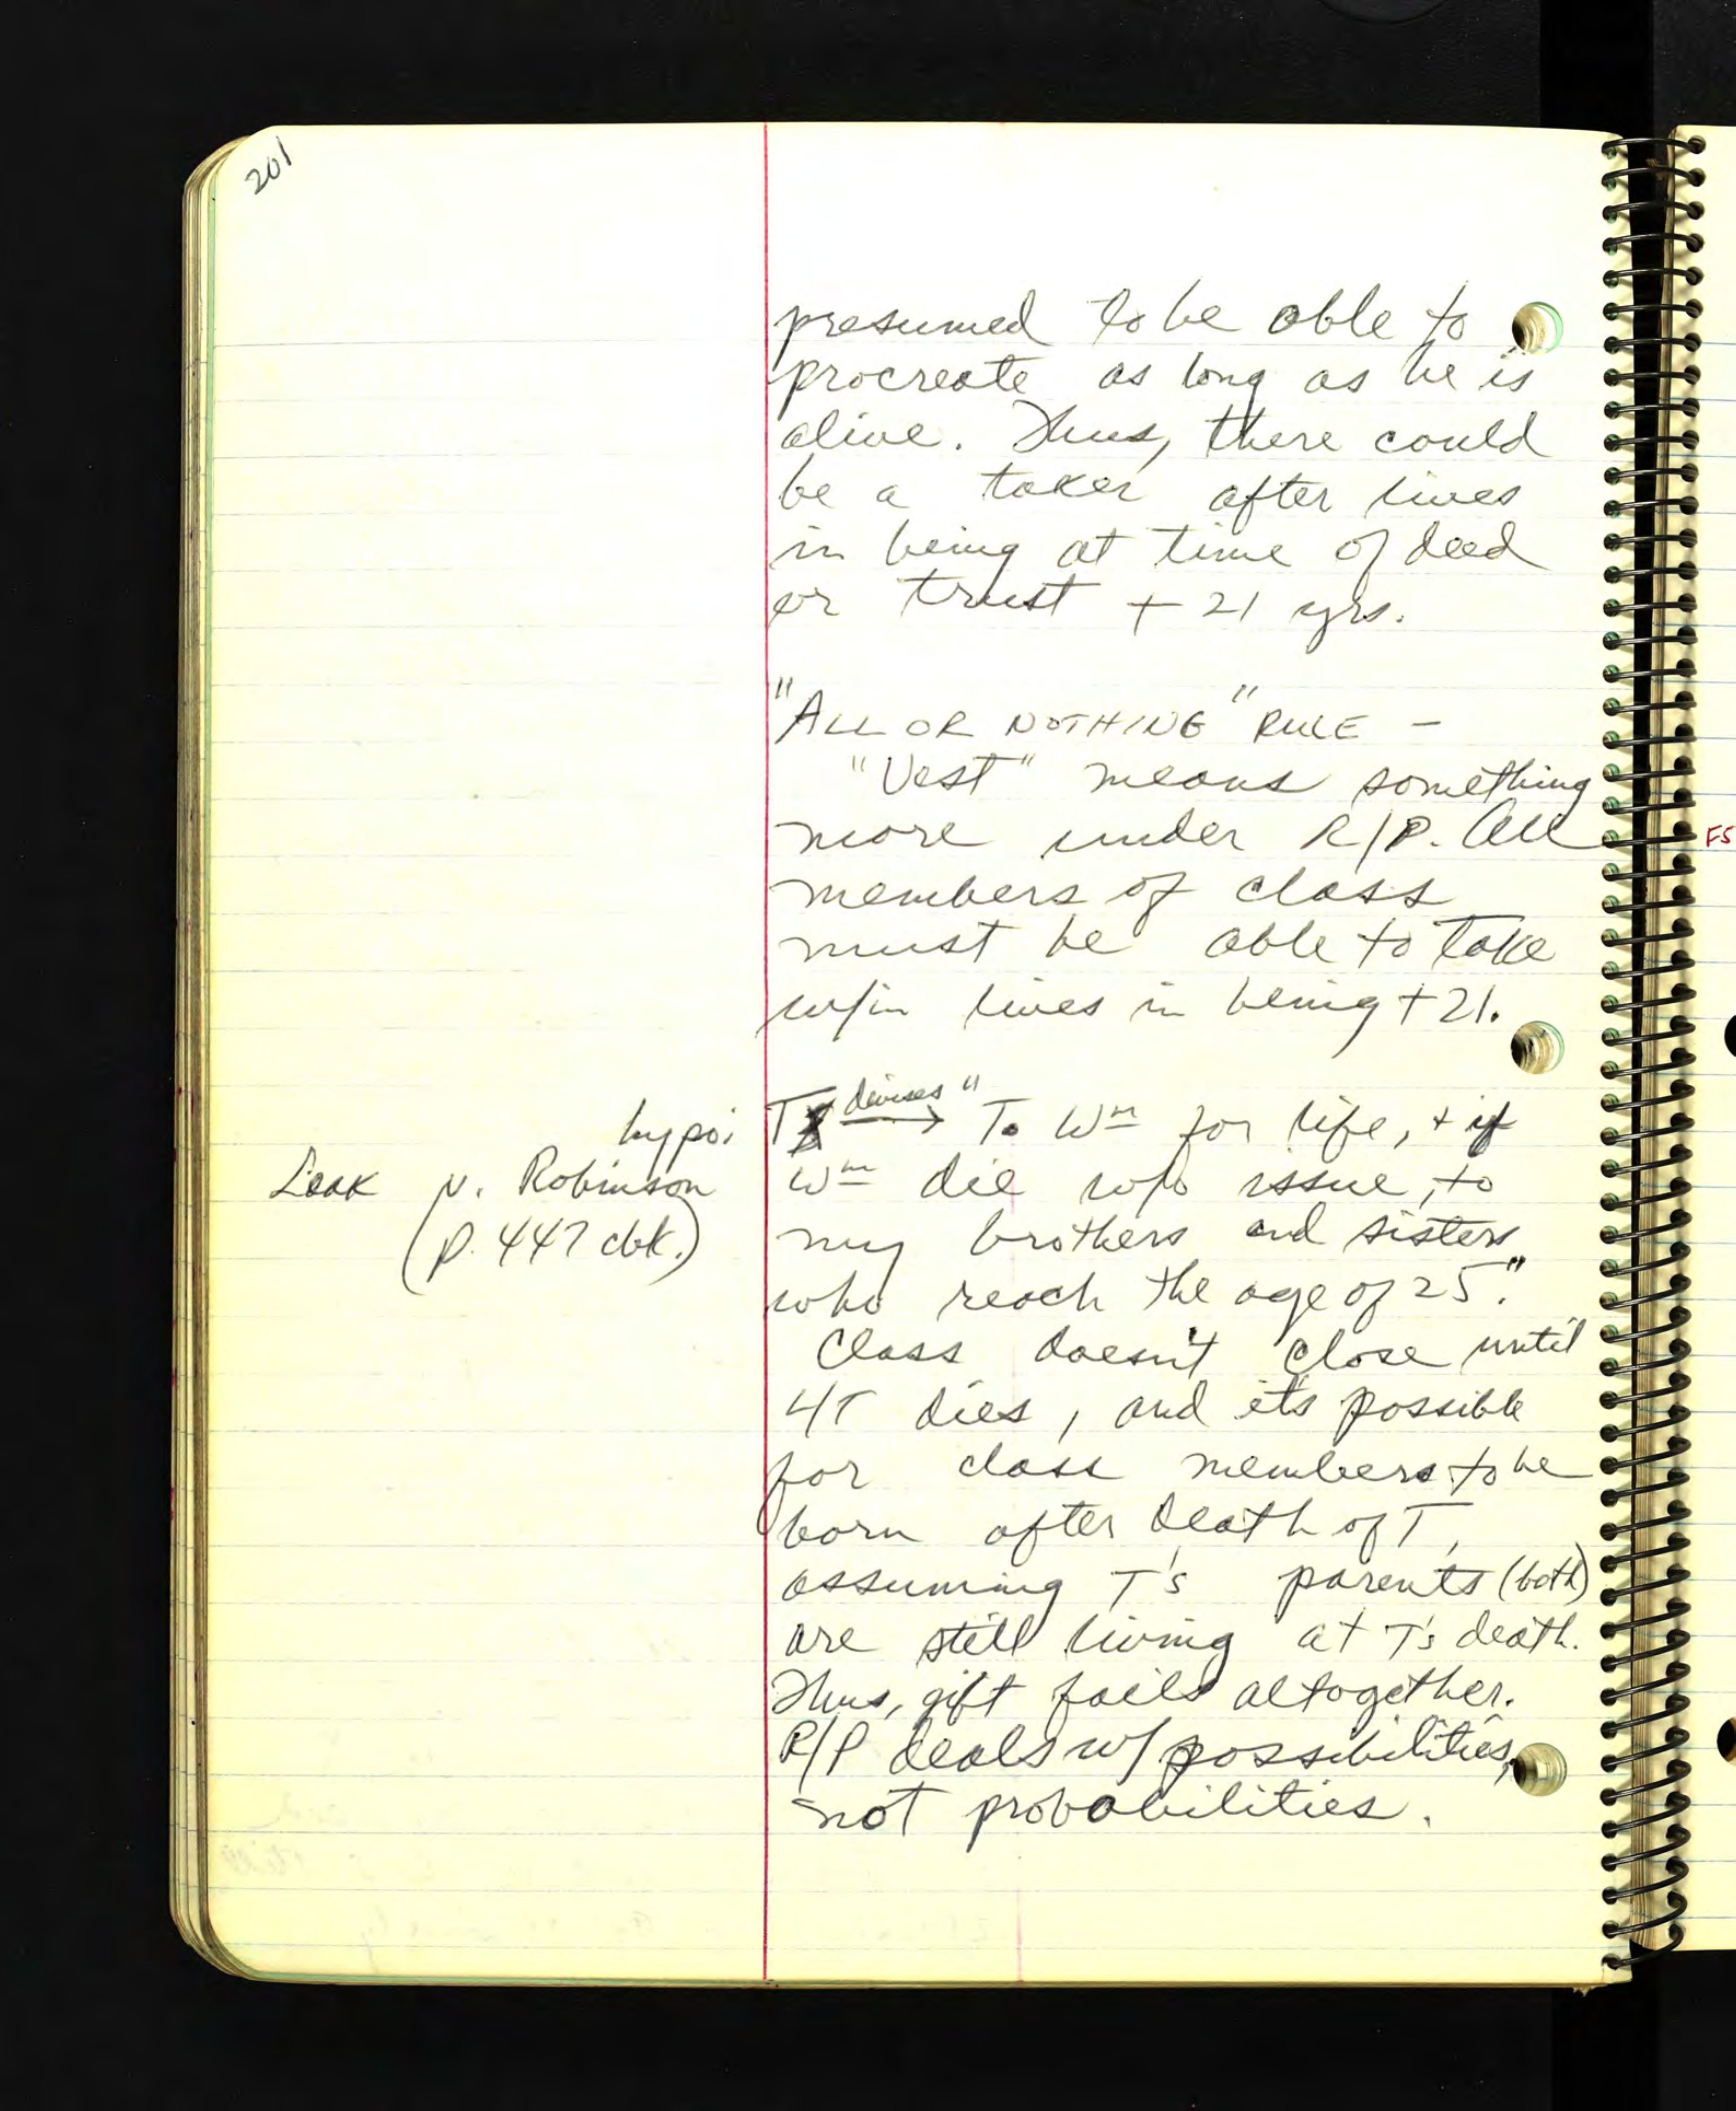 201
presumed to be able to
procreate as long as he is
alive. Thus, there could
be a taker after lives
in being at time of deed
or trust + 21 yrs.
"ALL OR NOTHING" RULE -
"Vest" means something
more under R/P. All
members of class
must be able to take
w/in lives in being + 21.
hypo:
Leak v. Robinson
(p. 447 cbk.)
T devises → "To Wm for life, + if
Wm die w/o issue, to
my brothers and sisters
who reach the age of 25."
Class doesn't close until
LT dies, and it's possible
for class members to be
born after death of T,
assuming T's parents (both)
are still living at T's death.
Thus, gift fails altogether.
R/P deals w/ possibilities,
not probabilities.
FS